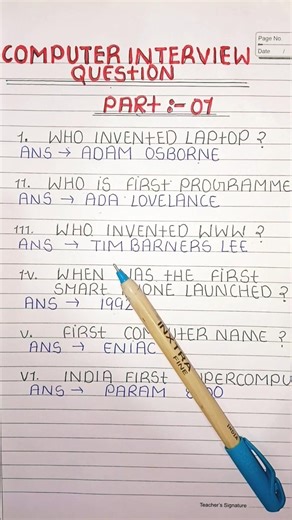 Page No.
Date /
COMPUTER INTERVIEW
QUESTION
PART :- 01
1. WHO INVENTED LAPTOP ?
ANS → ADAM OSBORNE
11. WHO IS FIRST PROGRAMME
ANS → ADA LOVELANCE
111. WHO INVENTED WWW ?
ANS → TIM BARNERS LEE
1V. WHEN WAS THE FIRST
SMART PHONE LAUNCHED ?
ANS → 1992
V. FIRST COMPUTER NAME ?
ANS → ENIAC
V1. INDIA FIRST SUPERCOMPU
ANS → PARAM 8000
INXTRA
FINE
INDIA
Teacher's Signature